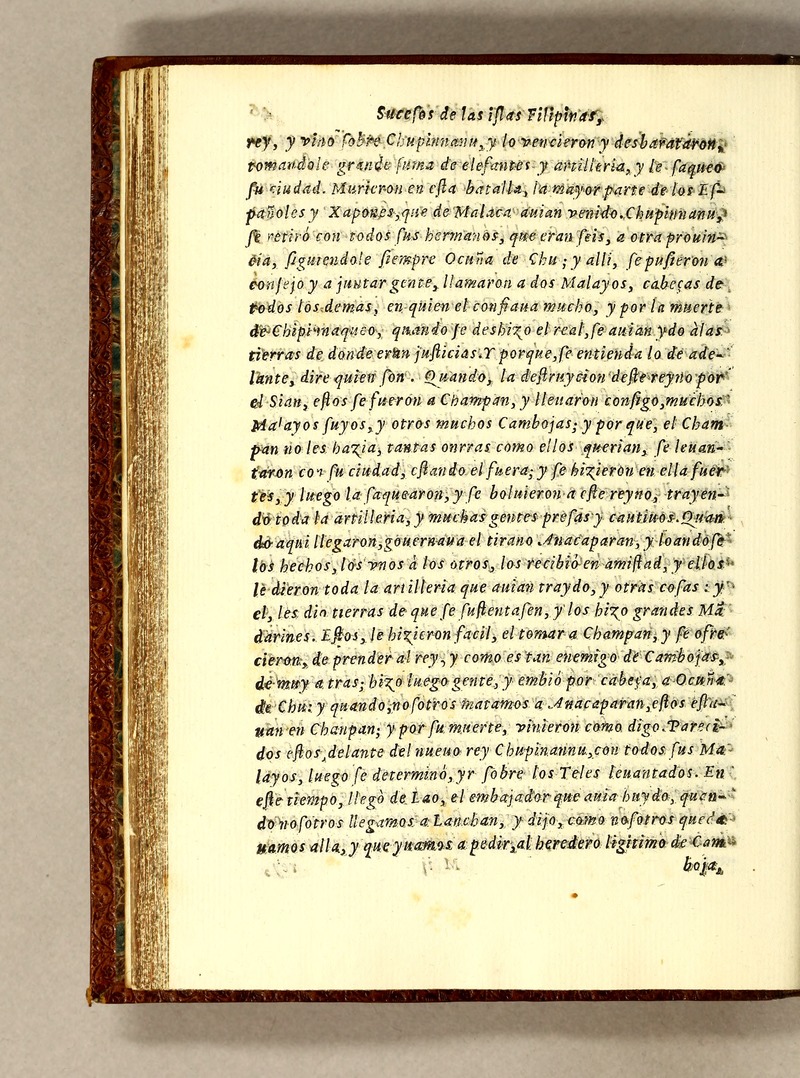 Sucesos de las iſlas Filipinas,
rey, y vino ſobre Chupinnanu, y lo vencieron y desbarataron,
tomandole grande ſuma de elefantes y artilleria, y le ſaqueo
ſu ciudad. Murieron en eſta batalla, la mayor parte de los Eſ-
pañoles y Xapones, que de Malaca auian venido. Chupinnanu,
ſe retiró con todos ſus hermanos, que eran ſeis, a otra prouin-
cia, ſiguiendole ſiempre Ocuña de Chu; y alli, ſe puſieron a
conſejo y a juntar gente, llamaron a dos Malayos, cabeças de
todos los demas, en quien el confiaua mucho, y por la muerte
de Chipinnaqueo, quando ſe deshizo el real, ſe auian ydo à las
tierras de donde eran juſticias. Y porque, ſe entienda lo de ade-
lante, dire quien ſon. Quando, la deſtruycion deſte reyno por
el Sian, eſtos ſe fueron a Champan, y lleuaron conſigo, muchos
Malayos ſuyos, y otros muchos Cambojas; y por que, el Cham
pan no les hazia, tantas onrras como ellos querian, ſe leuan-
taron con ſu ciudad, eſtando el fuera; y ſe hizieron en ella fuer
tes, y luego la ſaquearon, y ſe boluieron a eſte reyno, trayen-
do toda la artilleria, y muchas gentes preſas y cautiuos. Quan
do aqui llegaron, gouernaua el tirano Anacaparan, y loandoſe
los hechos, los vnos à los otros, los recibió en amiſtad, y ellos
le dieron toda la artilleria que auian traydo, y otras coſas : y
el, les dio tierras de que ſe ſuſtentaſen, y los hizo grandes Mã
darines. Eſtos, le hizieron facil, el tomar a Champan, y ſe ofre
cieron, de prender al rey, y como es tan enemigo de Cambojas,
de muy atras; hizo luego gente, y embió por cabeça, a Ocuña
de Chu: y quando, noſotros matamos a Anacaparan, eſtos eſta-
uan en Chanpan; y por ſu muerte, vinieron como digo. Pareci-
dos eſtos, delante del nueuo rey Chupinannu, con todos ſus Ma
layos, luego ſe determinó, yr ſobre los Teles leuantados. En
eſte tiempo, llegò de Lao, el embajador que auia huydo, quan-
do noſotros llegamos a Lanchan, y dijo, como noſotros queda
uamos alla, y que yuamos a pedir, al heredero ligitimo de Cam
boja,